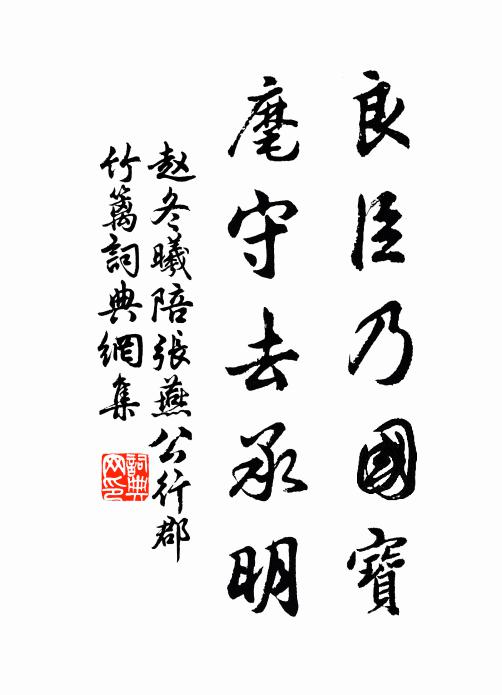 良臣乃國寶
麾守去承明
赵冬曦陪張燕公行郡
竹篱詞典網集
詞典
网印